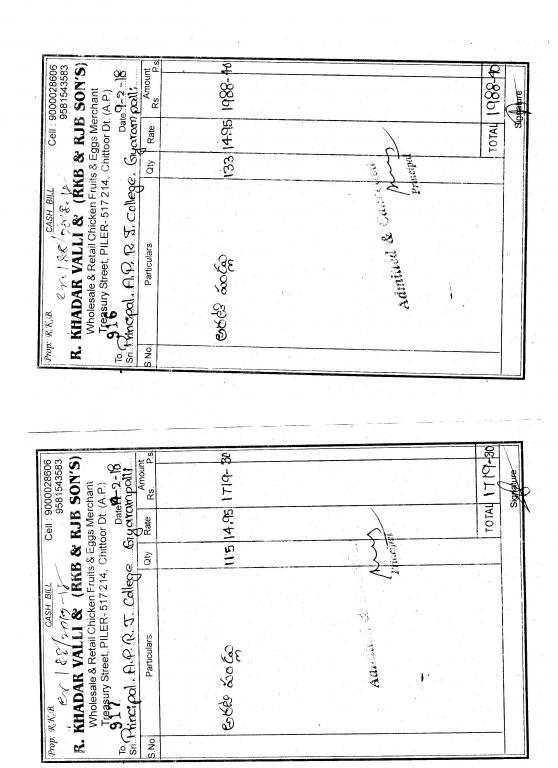 Prop: R.K.B.
CASH BILL
Cell : 9000028606
9581543583
R. KHADAR VALLI & (RKB & RJB SON'S)
Wholesale & Retail Chicken Fruits & Eggs Merchant
Treasury Street, PILER- 517 214, Chittoor Dt. (A.P.)
916
Date 9-2-18
To,
Sri. Principal. A.P.R.J. College. Gyarampalli.
S No. Particulars Qty Rate Amount
Rs. Ps.
అరటి పండ్లు 133 14.95 1988-40
Admitted &
Principal
TOTAL 1988-40
Signature
Prop: R.K.B.
CASH BILL
Cell : 9000028606
9581543583
R. KHADAR VALLI & (RKB & RJB SON'S)
Wholesale & Retail Chicken Fruits & Eggs Merchant
Treasury Street, PILER- 517 214, Chittoor Dt. (A.P.)
917
Date -2-18
To,
Sri. Principal. A.P.R.J. College Gyarampalli
S.No. Particulars Qty Rate Amount
Rs. Ps.
అరటి పండ్లు 115 14.95 1719-30
Principal
TOTAL 1719-30
Signature